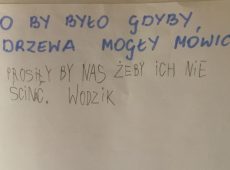 O BY BYŁO GDYBY,
DRZEWA MOGŁY MÓWIĆ
PROSIŁY BY NAS ŻEBY ICH NIE
ŚCINAĆ. WODZIK